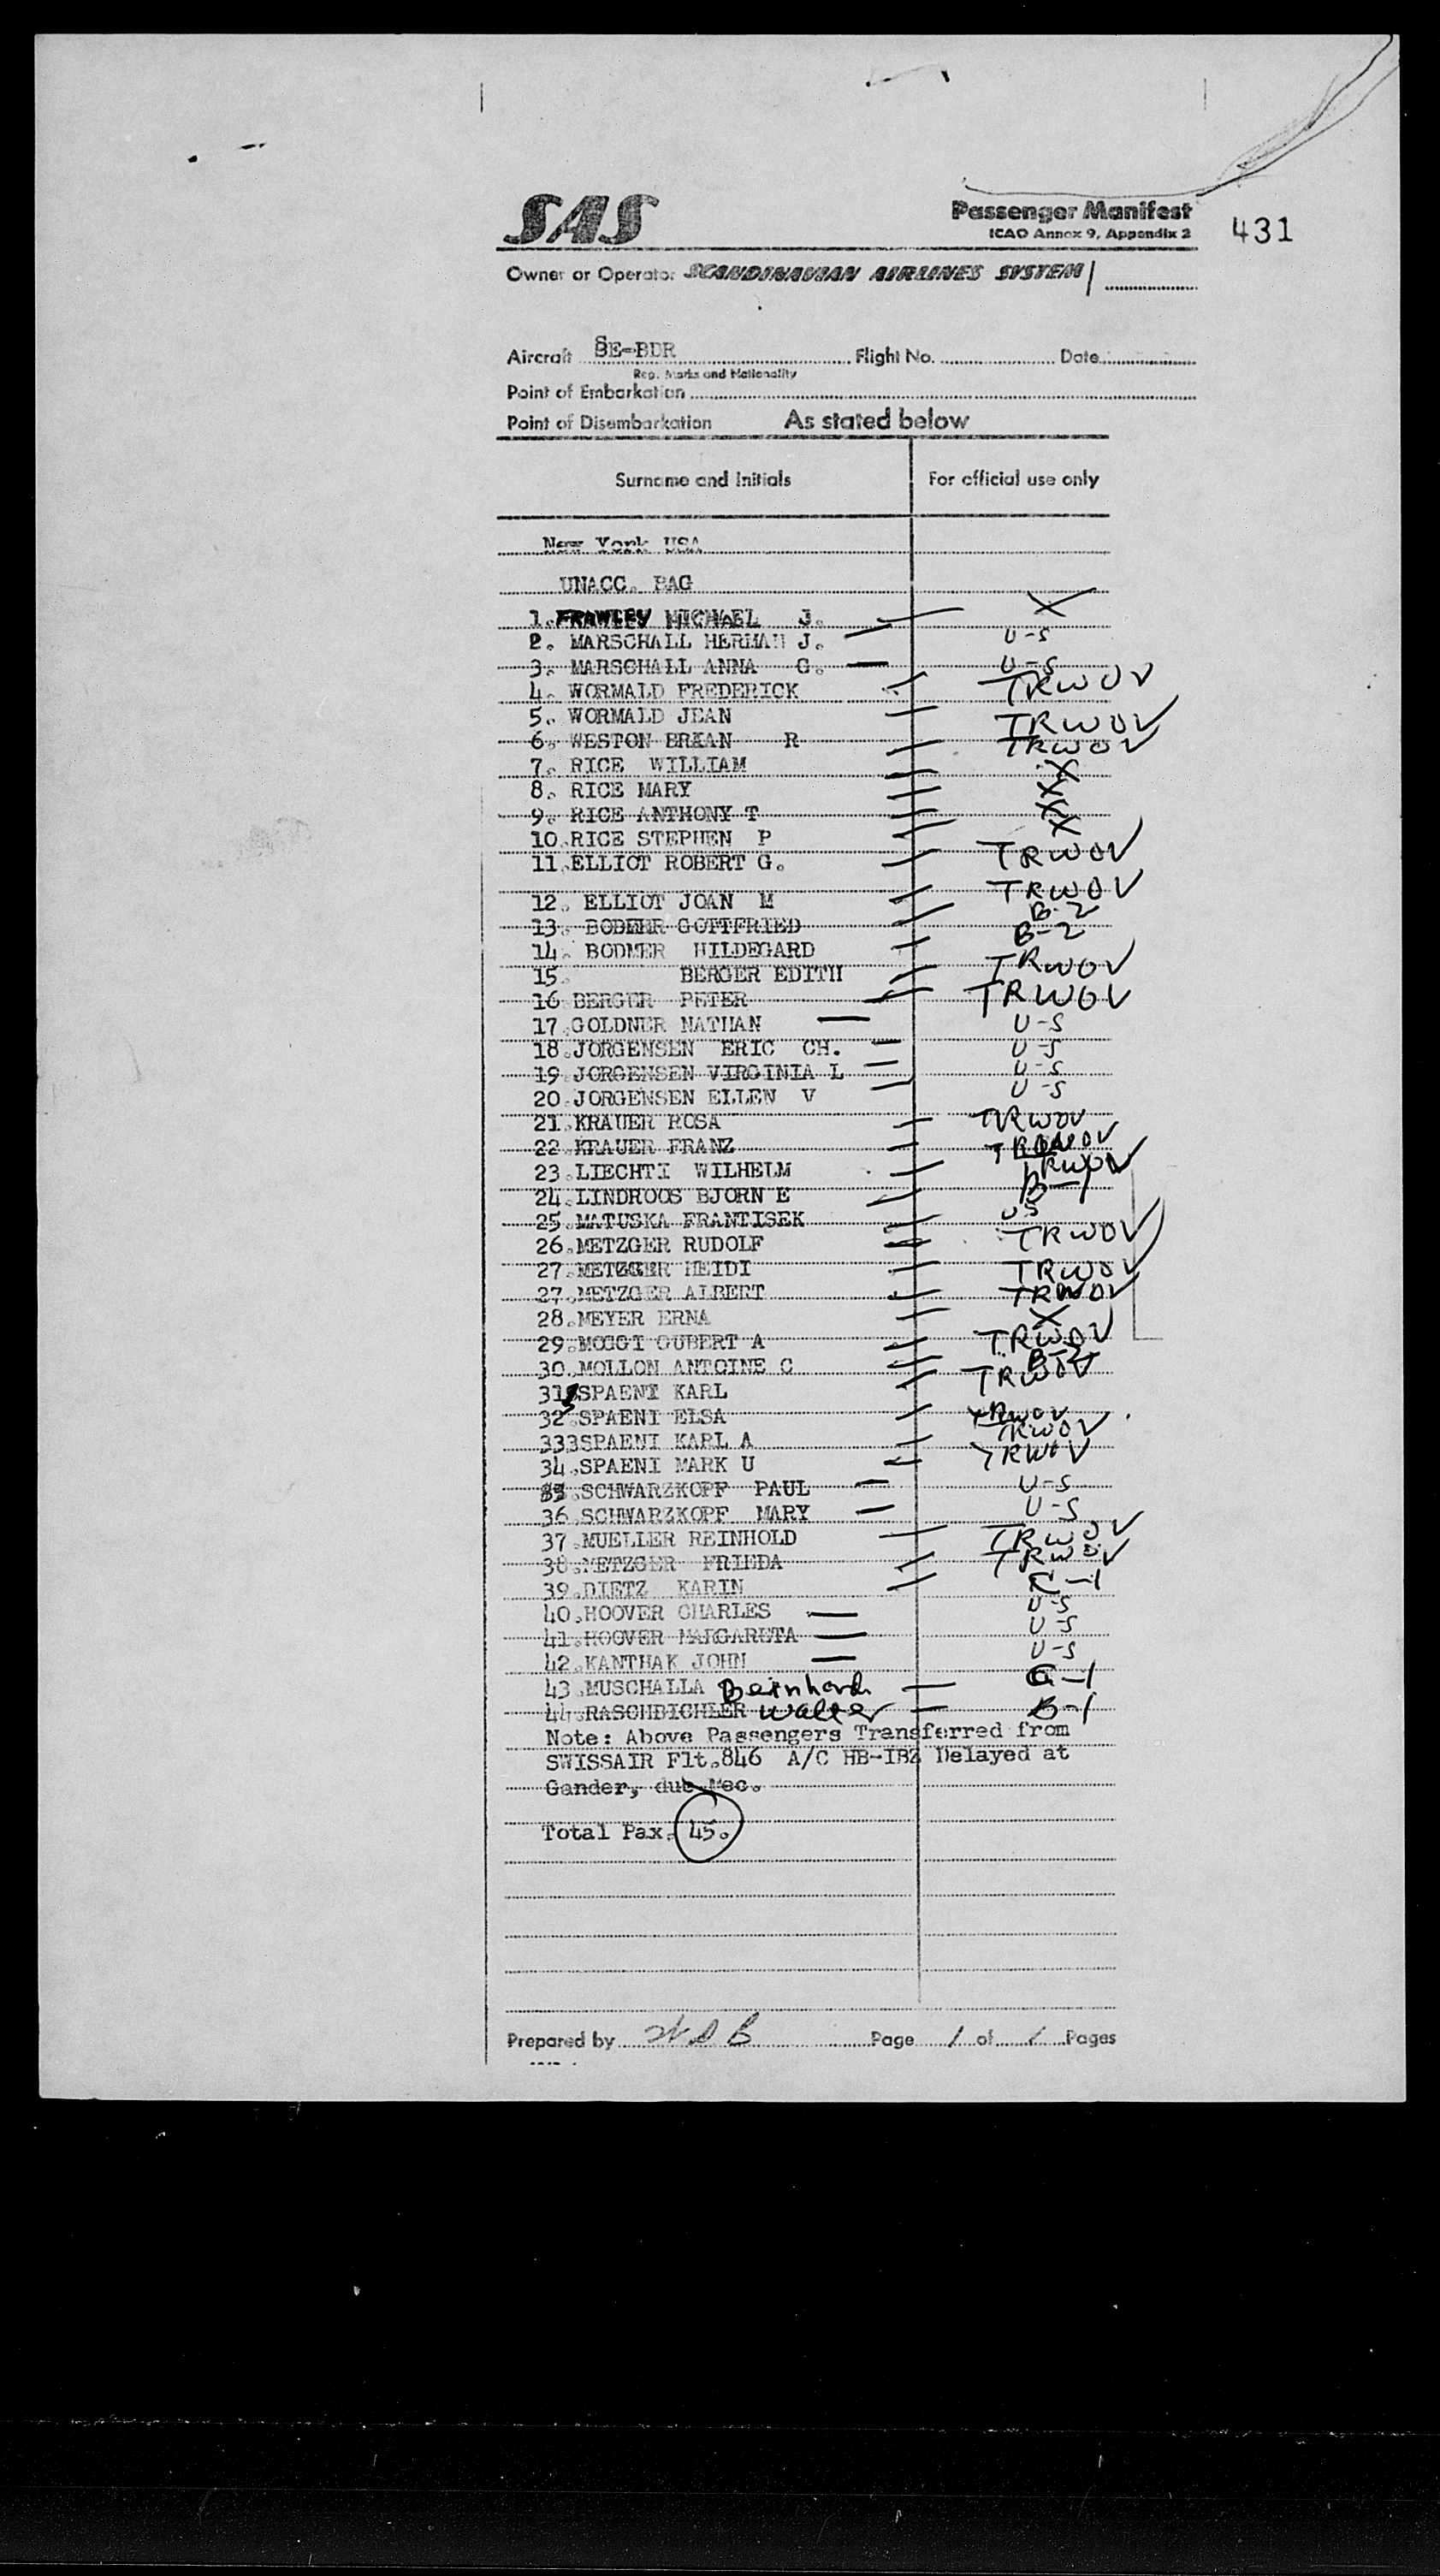 SAS
Passenger Manifest
ICAO Annex 9, Appendix 2
431
Owner or Operator SCANDINAVIAN AIRLINES SYSTEM
Aircraft SE-BDR Flight No. Date
Reg. Marks and Nationality
Point of Embarkation
Point of Disembarkation As stated below
Surname and Initials For official use only
New York USA
UNACC. BAG
1. FRAWLEY MICHAEL J. X
2. MARSCHALL HERMAN J. U-S
3. MARSCHALL ANNA G. U-S
4. WORMALD FREDERICK TRWOV
5. WORMALD JEAN TRWOV
6. WESTON BRIAN R TRWOV
7. RICE WILLIAM X
8. RICE MARY X
9. RICE ANTHONY T X
10. RICE STEPHEN P X
11. ELLIOT ROBERT G. TRWOV
12. ELLIOT JOAN M TRWOV
13. BODMER GOTTFRIED B-2
14. BODMER HILDEGARD B-2
15. BERGER EDITH TRWOV
16 BERGER PETER TRWOV
17. GOLDNER NATHAN U-S
18. JORGENSEN ERIC CH. U-S
19 JORGENSEN VIRGINIA L U-S
20. JORGENSEN ELLEN V U-S
21. KRAUER ROSA TRWOV
22 KRAUER FRANZ TRWOV
23. LIECHTI WILHELM TRWOV
24. LINDROOS BJORN E B-1
25. MATUSKA FRANTISEK US
26. METZGER RUDOLF TRWOV
27. METZGER HEIDI TRWOV
27. METZGER ALBERT TRWOV
28. MEYER ERNA X
29. MOGGI GUBERT A TRWOV
30. MOLLON ANTOINE C B-2
31. SPAENI KARL TRWOV
32. SPAENI ELSA TRWOV
333SPAENI KARL A TRWOV
34. SPAENI MARK U TRWOV
35. SCHWARZKOPF PAUL U-S
36. SCHWARZKOPF MARY U-S
37. MUELLER REINHOLD TRWOV
38. METZGER FRIEDA TRWOV
39. DIETZ KARIN C-1
40. HOOVER CHARLES U-S
41. HOOVER MARGARETA U-S
42. KANTHAK JOHN U-S
43. MUSCHALLA Bernhard G-1
44. RASCHDICHLER Walter B-1
Note: Above Passengers Transferred from
SWISSAIR Flt.846 A/C HB-IBZ Delayed at
Gander, due Mec.
Total Pax. 45.
Prepared by Page 1 of 1 Pages